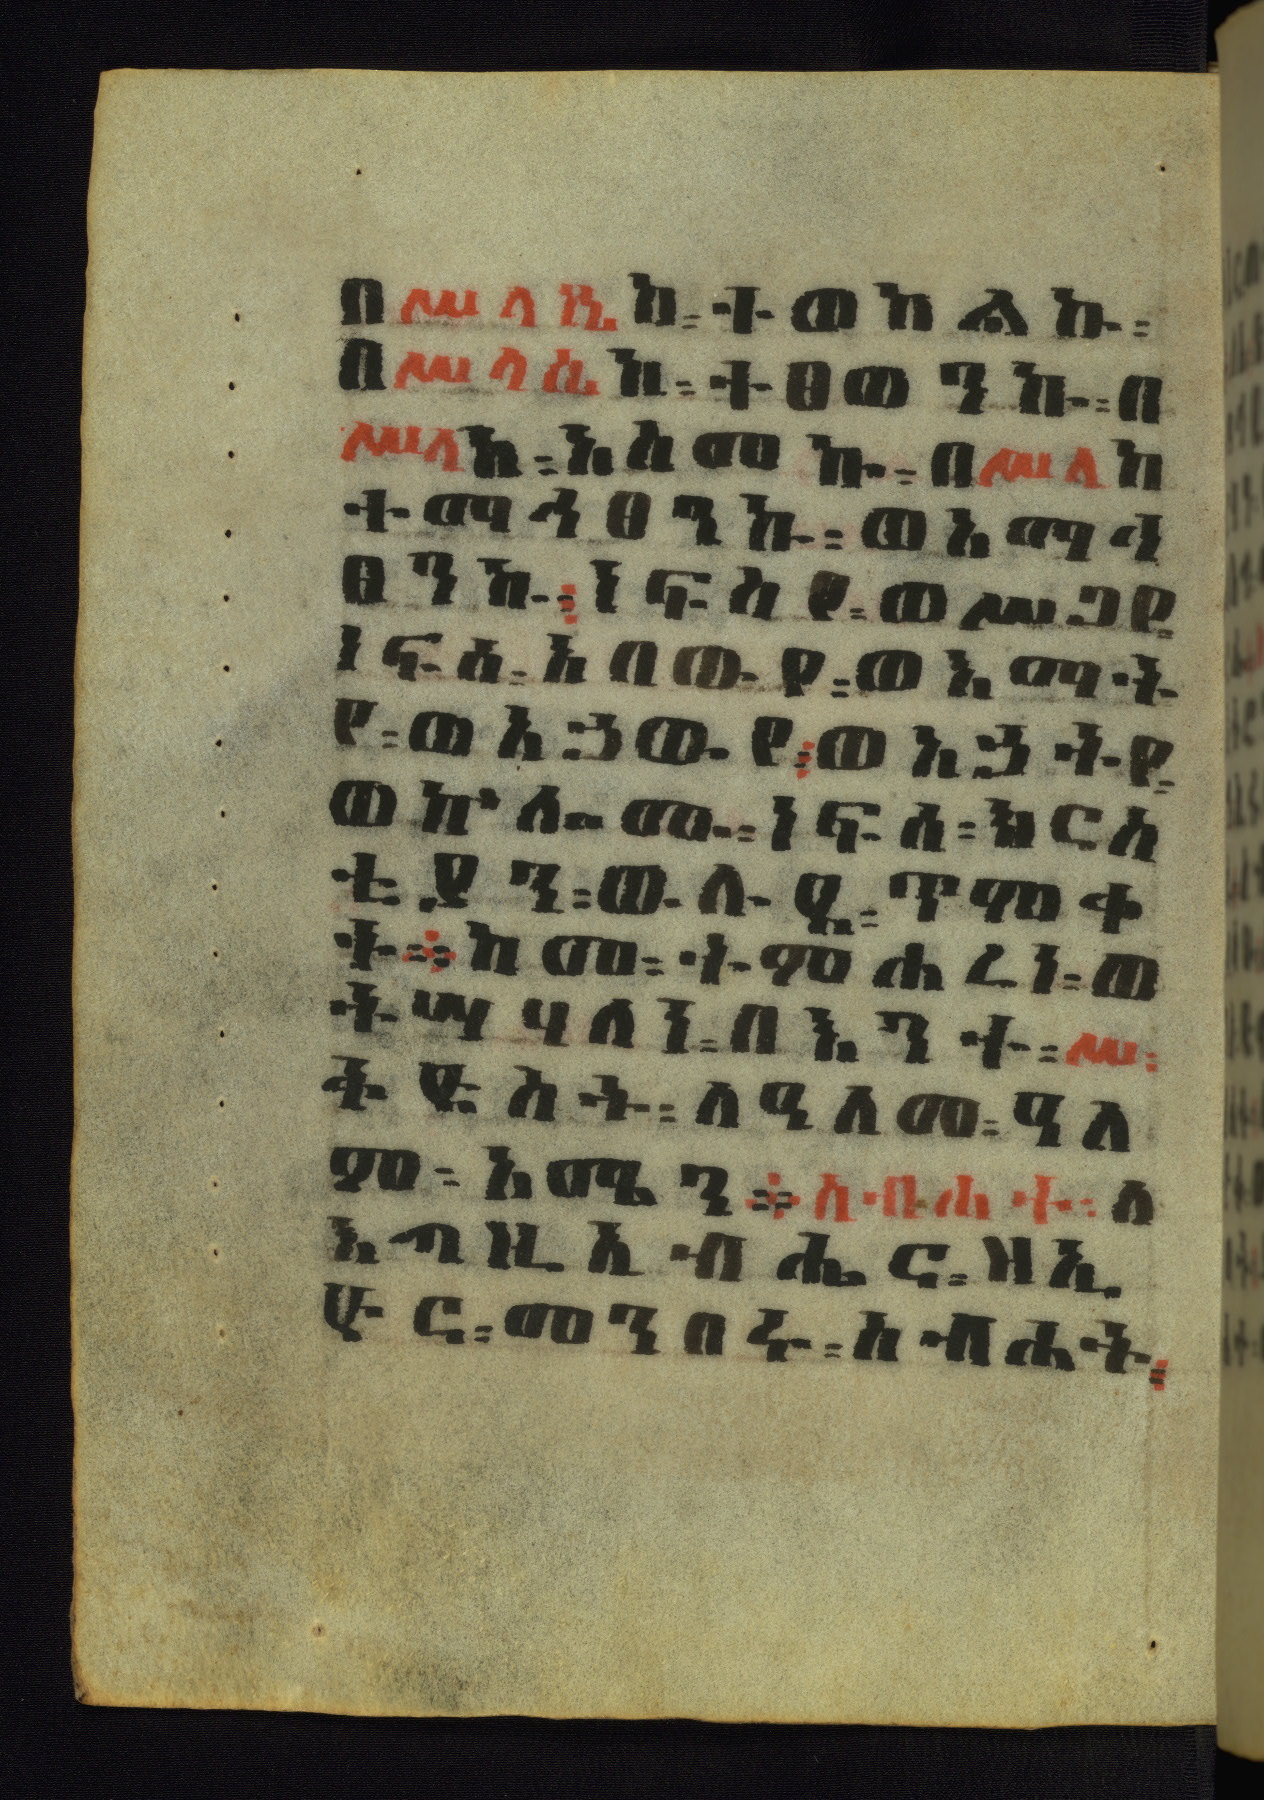 በሥላሴከ፡ተወከልኩ፡
በሥላሴከ፡ተፀወንኩ፡በ
ሥላሴከ፡አእመንኩ፡በሥላሴከ
ተማሕፀንኩ፡ወአማሕ
ፀንኩ፡ነፍስየ፡ወሥጋየ
ነፍሰ፡አበውየ፡ወእማት
የ፡ወአኃውየ፡ወአኃትየ
ወኵሎሙ፡ነፍሰ፡ክርስ
ቲያን፡ውሉደ፡ጥምቀ
ት።ከመ፡ትምሐረነ፡ወ
ትሣሃለነ፡በእንተ፡ሥ፡
ቅድስት፡ለዓለመ፡ዓለ
ም፡አሜን።ስብሐት፡ለ
እግዚአብሔር፡ዘኢ
ይፍር፡መንበሩ፡ስብሐት፡